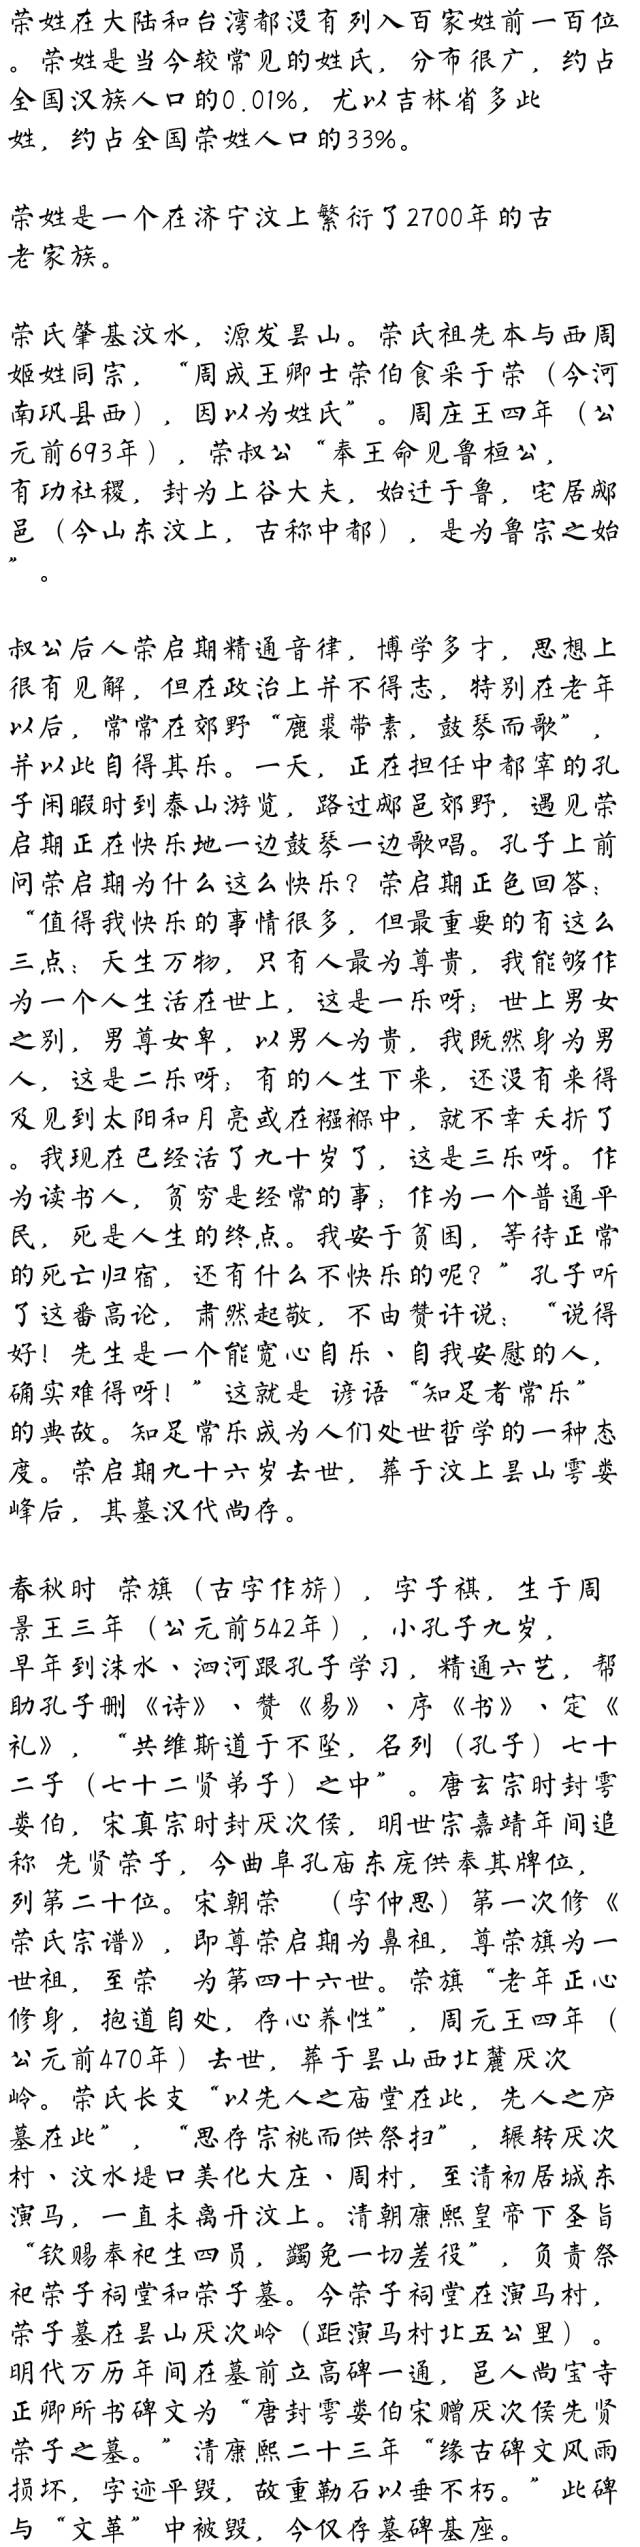 荣姓在大陆和台湾都没有列入百家姓前一百位
。荣姓是当今较常见的姓氏，分布很广，约占
全国汉族人口的0.01%，尤以吉林省多此
姓，约占全国荣姓人口的33%。
荣姓是一个在济宁汶上繁衍了2700年的古
老家族。
荣氏肇基汶水，源发昙山。荣氏祖先本与西周
姬姓同宗，“周成王卿士荣伯食采于荣（今河
南巩县西），因以为姓氏”。周庄王四年（公
元前693年），荣叔公“奉王命见鲁桓公，
有功社稷，封为上谷大夫，始迁于鲁，宅居郕
邑（今山东汶上，古称中都），是为鲁宗之始
”。
叔公后人荣启期精通音律，博学多才，思想上
很有见解，但在政治上并不得志，特别在老年
以后，常常在郊野“鹿裘带素，鼓琴而歌”，
并以此自得其乐。一天，正在担任中都宰的孔
子闲暇时到泰山游览，路过郕邑郊野，遇见荣
启期正在快乐地一边鼓琴一边歌唱。孔子上前
问荣启期为什么这么快乐？荣启期正色回答：
“值得我快乐的事情很多，但最重要的有这么
三点：天生万物，只有人最为尊贵，我能够作
为一个人生活在世上，这是一乐呀；世上男女
之别，男尊女卑，以男人为贵，我既然身为男
人，这是二乐呀；有的人生下来，还没有来得
及见到太阳和月亮或在襁褓中，就不幸夭折了
。我现在已经活了九十岁了，这是三乐呀。作
为读书人，贫穷是经常的事；作为一个普通平
民，死是人生的终点。我安于贫困，等待正常
的死亡归宿，还有什么不快乐的呢？”孔子听
了这番高论，肃然起敬，不由赞许说：“说得
好！先生是一个能宽心自乐、自我安慰的人，
确实难得呀！”这就是 谚语“知足者常乐”
的典故。知足常乐成为人们处世哲学的一种态
度。荣启期九十六岁去世，葬于汶上昙山雩娄
峰后，其墓汉代尚存。
春秋时 荣旗（古字作旂），字子祺，生于周
景王三年（公元前542年），小孔子九岁，
早年到洙水、泗河跟孔子学习，精通六艺，帮
助孔子删《诗》、赞《易》、序《书》、定《
礼》，“共维斯道于不坠，名列（孔子）七十
二子（七十二贤弟子）之中”。唐玄宗时封雩
娄伯，宋真宗时封厌次侯，明世宗嘉靖年间追
称 先贤荣子，今曲阜孔庙东庑供奉其牌位，
列第二十位。宋朝荣 （字仲思）第一次修《
荣氏宗谱》，即尊荣启期为鼻祖，尊荣旗为一
世祖，至荣 为第四十六世。荣旗“老年正心
修身，抱道自处，存心养性”，周元王四年（
公元前470年）去世，葬于昙山西北麓厌次
岭。荣氏长支“以先人之庙堂在此，先人之庐
墓在此”，“思存宗祧而供祭扫”，辗转厌次
村、汶水堤口美化大庄、周村，至清初居城东
演马，一直未离开汶上。清朝康熙皇帝下圣旨
“钦赐奉祀生四员，蠲免一切差役”，负责祭
祀荣子祠堂和荣子墓。今荣子祠堂在演马村，
荣子墓在昙山厌次岭（距演马村北五公里）。
明代万历年间在墓前立高碑一通，邑人尚宝寺
正卿所书碑文为“唐封雩娄伯宋赠厌次侯先贤
荣子之墓。”清康熙二十三年“缘古碑文风雨
损坏，字迹平毁，故重勒石以垂不朽。”此碑
与“文革”中被毁，今仅存墓碑基座。